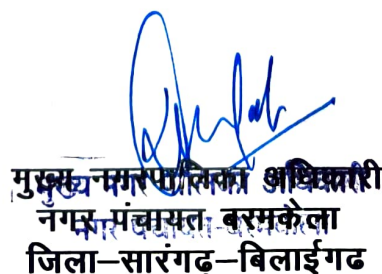 मुख्य नगरपालिका अधिकारी
नगर पंचायत बरमकेला
जिला-सारंगढ़-बिलाईगढ